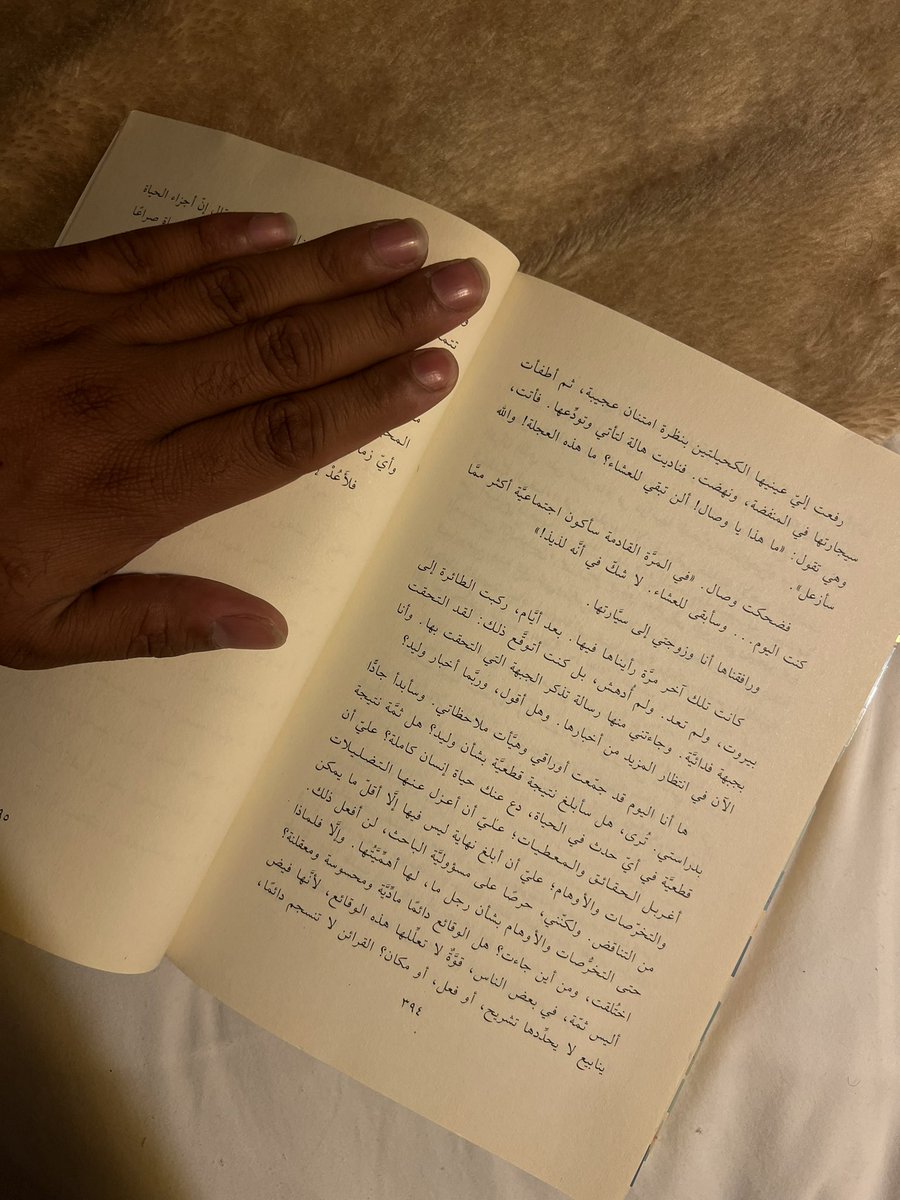 رفعت إليّ عينيها الكحيلتين بنظرة امتنان عجيبة، ثم أطفأت
سيجارتها في المنفضة، ونهضت. فناديت هالة لتأتي وتودّعها. فأتت،
وهي تقول: «ما هذا يا وصال! ألن تبقي للعشاء؟ ما هذه العجلة! والله
سأزعل».
فضحكت وصال. «في المرّة القادمة سأكون اجتماعيّة أكثر ممّا
كنت اليوم... وسأبقى للعشاء. لا شكّ في أنّه لذيذ!»
ورافقناها أنا وزوجتي إلى سيّارتها.
كانت تلك آخر مرّة رأيناها فيها. بعد أيّام، ركبت الطائرة إلى
بيروت، ولم تعد. ولم أدهش، بل كنت أتوقّع ذلك: لقد التحقت
بجبهة فدائيّة. وجاءتني منها رسالة تذكر الجبهة التي التحقت بها. وأنا
الآن في انتظار المزيد من أخبارها. وهل أقول، وربّما أخبار وليد؟
ها أنا اليوم قد جمّعت أوراقي وهيّأت ملاحظاتي. وسأبدأ جادًّا
بدراستي. تُرى، هل سأبلغ نتيجة قطعيّة بشأن وليد؟ هل ثمّة نتيجة
قطعيّة في أيّ حدث في الحياة، دع عنك حياة إنسان كاملة؟ عليّ أن
أغربل الحقائق والمعطيات؛ عليّ أن أعزل عنها التضليلات
والتخرّصات والأوهام؛ عليّ أن أبلغ نهاية ليس فيها إلّا أقلّ ما يمكن
من التناقض. ولكنّني، حرصًا على مسؤوليّة الباحث، لن أفعل ذلك.
حتى التخرُّصات والأوهام بشأن رجل ما، لها أهمّيَّتُها. وإلّا فلماذا
اختُلقت، ومن أين جاءت؟ هل الوقائع دائمًا مادّيَّة ومحسوسة ومعقلنة؟
أليس ثمّة، في بعض الناس، قوّةٌ لا تعلّلها هذه الوقائع، لأنّها فيض
ينابيع لا يحدّدها تشريح، أو فعل، أو مكان؟ القرائن لا تنسجم دائمًا،
٣٩٤
إنّ أجزاء الحياة
صراعًا
وأيّ
فلأَعُدْ